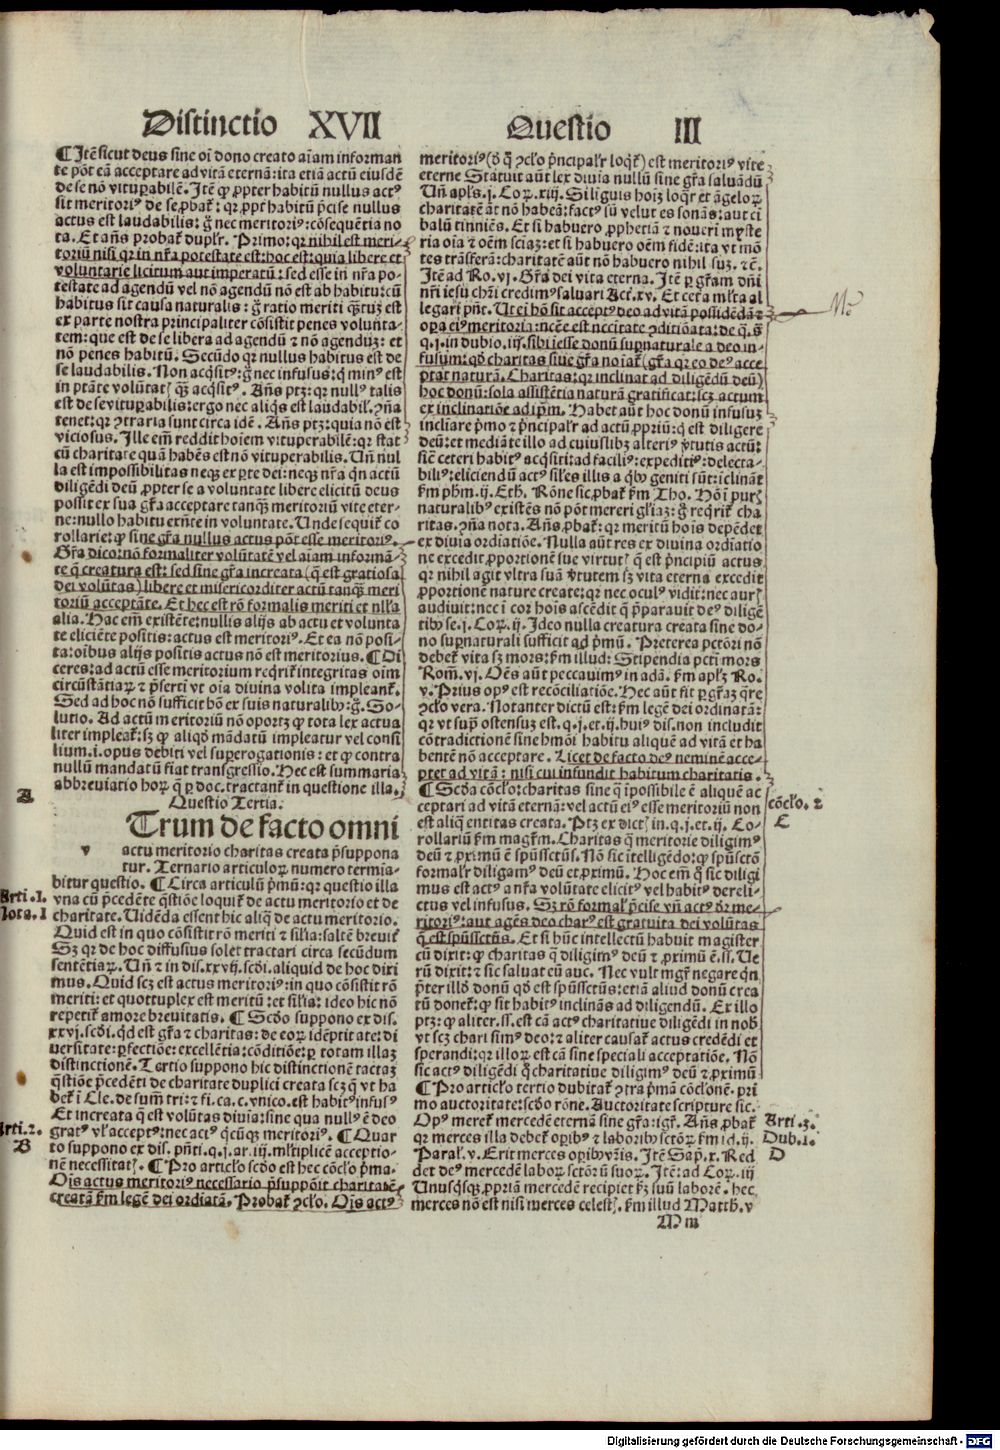 Distinctio XVII
¶ Itē sicut deus sine oī dono creato aīam informan
te pōt eā acceptare ad vitā eternā: ita etiā actū eiusdē
de se nō vituꝑabilē. Itē ꝙ ꝓpter habitū nullus actꝰ
sit meritoriꝰ de se ꝓbaꞇ̃: qꝛ ꝓpt̃ habitū p̄cise nullus
actus est laudabilis: g̃ nec meritoriꝰ: cōsequētia no
ta. Et añs probat̃ dupl̃r. Primo: qꝛ nihil est meri-
toriū nisi qꝛ in nr̃a potestate est: hoc est: quia libere et
voluntarie licitum aut imperatū: sed esse in nr̃a po-
testate ad agendū vel nō agendū nō est ab habitu: cū
habitus sit causa naturalis: g̃ ratio meriti qᷓtuꝫ est
ex parte nostra principaliter cōsistit penes volunta-
tem: que est de se libera ad agendū ⁊ nō agenduꝫ: et
nō penes habitū. Secūdo qꝛ nullus habitus est de
se laudabilis. Non acq̃sitꝰ: g̃ nec infusus: q̃ minꝰ est
in ptāte volūtatꝭ qᷓꝫ acq̃sitꝰ. Añs ptꝫ: qꝛ nullꝰ talis
est de se vituꝑabilis: ergo nec aliq̃s est laudabiꝉ. ꝯña
tenet: qꝛ ꝯtraria sunt circa idē. Añs ptꝫ: quia nō est
viciosus. Ille em̄ reddit hoīem vituperabilē: qꝛ stat
cū charitate quā habēs est nō vituperabilis. Uñ nul
la est impossibilitas neqꝫ ex ꝑte dei: neqꝫ nr̃a q̄n actū
diligēdi deū ꝓpter se a voluntate libere elicitū deus
possit ex sua gr̃a acceptare tanqᷓꝫ meritoriū vite eter-
ne: nullo habitu exñte in voluntate. Unde sequit̃ co
rollarie: ꝙ sine gr̃a nullus actus pōt esse meritoriꝰ.
Gr̃a dico: nō formaliter volūtatē vel aīam informā-
te q̄ creatura est: sed sine gr̃a increata (q̄ est gratiosa
dei volūtas) libere et misericorditer actū tanqᷓꝫ meri
toriū acceptāte. Et hec est rō formalis meriti et nll̃a
alia. Hac em̄ existēte: nullis alijs ab actu et volunta
te elicīēte positis: actus est meritoriꝰ. Et ea nō posi-
ta: oībus alijs positis actus nō est meritorius. ¶ Di
ceres: ad actū esse meritorium req̃rit̃ integritas oīm
circūstātiaꝝ ⁊ p̄serti vt oīa divina volita impleant̃.
Sed ad hoc nō sufficit hō ex suis naturalibꝰ: g̃. So-
lutio. Ad actū meritoriū nō oportꝫ ꝙ tota lex actua
liter impleat̃: sꝫ ꝙ aliqd̃ mādatū impleatur vel consi
lium .i. opus debiti vel suꝑerogationis: et ꝙ contra
nullū mandatū fiat transgressio. Hec est summaria
abbreviatio hoꝝ q̄ ꝑ doc. tractant̃ in questione illa.
Questio Tertia.
Utrum de facto omni
v actu meritorio charitas creata p̄suppona
tur. Ternario articuloꝝ numero termia-
bitur questio. ¶ Circa articulū p̄mū: qꝛ questio illa
vna cū p̄cedēte q̄stiōe loquit̃ de actu meritorio et de
charitate. Uidēda essent hic aliq̄ de actu meritorio.
Quid est in quo cōsistit rō meriti ⁊ silia: saltē breuit̃
Sꝫ qꝛ de hoc diffusius solet tractari circa secūdum
sentētiaꝝ. Uñ ⁊ in dis. xxvij. scdi. aliquid de hoc dixi
mus. Quid scꝫ est actus meritoriꝰ: in quo cōsistit rō
meriti: et quottuplex est meritū: et silia: ideo hic nō
repetit̃ amore breuitatis. ¶ Scdo suppono ex dis.
xxvj. scdi. qd est gr̃a ⁊ charitas: de eoꝝ idēptitate: di
uersitate: ꝑfectiōe: excellētia: cōditiōe: ꝑ totam illaꝫ
distinctionē. Tertio suppono hic distinctionē tactaꝫ
q̄stiōe p̄cedēti de charitate duplici creata scꝫ q̄ vt ha
bet̃ ī Cle. de sum̄ tri: ⁊ fi. ca. c. vnico. est habitꝰ infusꝰ
Et increata q̄ est volūtas diuīa: sine qua nullꝰ ē deo
gratꝰ vl̃ acceptꝰ: nec actꝰ q̄cūqꝫ meritoriꝰ. ¶ Quar
to suppono ex dis. pn̄ti. q. j. ar. iij. mltiplicē acceptio-
nē necessitatꝭ. ¶ Pro articl̃o scdo est hec cōcl̃o p̄ma.
Ois actus meritoriꝰ necessario p̄supponit charitatē
creatā ẜm legē dei ordiatā. Probat̃ ꝯcl̃o. Ois actꝰ
A
Arti .1.
Nota .1
Arti .2.
B
Questio III
meritoriꝰ (d̄ q̄ ꝯcl̃o p̄ncipal̃r loqt̃) est meritoriꝰ vite
eterne Statuit aūt lex diuīa nullū sine gr̃a saluādū
Uñ apl̃s .j. Coꝝ. xiij. Si liguis hoīꝫ loq̃r et āgeloꝝ
charitatē āt nō habeā: factꝰ sū velut es sonās: aut cī
balū tinniēs. Et si habuero ꝓphetiā ⁊ noueri myste
ria oīa ⁊ oēm sciāꝫ: et si habuero oēm fidē: ita vt mō
tes trāsferā: charitatē aūt nō habuero nihil suꝫ. ⁊č.
Itē ad Ro. vj. Gr̃a dei vita eterna. Itē ꝑ gr̃am dñi
nr̃i iesu chr̃i credimꝰ saluari Act. xv. Et cet̃a ml̃ta al
legari pñt. Ut ei hō sit acceptꝰ deo ad vitā possidēdā ⁊
opa eiꝰ meritoria: ncēe est necitate ꝯditiōata: de q̄. s̃
q. j. in dubio. iij. sibi iesse donū suꝑnaturale a deo in-
fusum: qd̄ charitas siue gr̃a noīat̃ (gr̃a qꝛ eo deꝰ acce
ptat naturā. Charitas: qꝛ inclinat ad diligēdū deū)
hoc donū: sola assistētia naturā gratificat: scꝫ actum
ex inclinatiōe ad ip̄m. Habet aūt hoc donū infusuꝫ
incliare p̄mo ⁊ p̄ncipal̃r ad actū ꝓpriū: q̄ est diligere
deū: et mediāte illo ad cuiuslibꝫ alteriꝰ v̄tutis actū:
sicē ceteri habitꝰ acq̃siti: ad faciliꝰ: expeditiꝰ: delecta-
biliꝰ: eliciendū actꝰ sil̃es illis a qbꝰ geniti sūt: iclināt
ẜm phm̄. ij. Eth. Rōne sic ꝓbat̃ ẜm Tho. Hō ī purꝭ
naturalibꝰ existēs nō pōt mereri gliaꝫ: g̃ req̃rit̃ cha
ritas. ꝯña nota. Añs ꝓbat̃: qꝛ meritū hoīs depēdet
ex diuia ordiatiōe. Nulla aūt res ex diuina ordiatio
ne excedit ꝓportionē sue virtutꝭ q̄ est p̄ncipiū actus
qꝛ nihil agit vltra suā v̄tutem sꝫ vita eterna excedit
ꝓportionē nature create: qꝛ nec oculꝰ vidit: nec aurꝭ
audiuit: nec ī cor hoīs ascēdit q̄ p̄parauit deꝰ diligē
tibꝰ se .j. Coꝝ. ij. Ideo nulla creatura creata sine do-
no suꝑnaturali sufficit ad p̄mū. Preterea pctōri nō
debet̃ vita sꝫ mors: ẜm illud: Stipendia pcti mors
Rom̄. vj. Oēs aūt peccauimꝰ in adā. ẜm apl̃ꝫ Ro.
v. Prius opꝰ est recōciliatiōe. Hec aūt fit ꝑ gr̃aꝫ q̄re
ꝯcl̃o vera. Notanter dictū est: ẜm legē dei ordinatā:
qꝛ vt sup̄ ostensuꝫ est. q. j. et. ij. huiꝰ dis. non includit
cōtradictionē sine hmōi habitu aliquē ad vitā et ha
bentē nō acceptare. Licet de facto deꝰ neminē acce-
ptet ad vitā: nisi cui infundit habitum charitatis.
¶ Scda cōcl̃o: charitas sine q̄ ipossibile ē aliquē ac
ceptari ad vitā eternā: vel actū eiꝰ esse meritoriū non
est aliq̄ entitas creata. Ptꝫ ex dictꝭ in. q. j. et. ij. Co-
rollariū ẜm magr̃m. Charitas q̄ meritorie diligimꝰ
deū ⁊ ꝓximū ē sp̄ussctūs. Nō sic itelligēdo: ꝙ sp̄usctō
formal̃r diligam̄ deū et ꝓximū. Hoc em̄ q̄ sic diligi
mus est actꝰ a nr̃a volūtate elicitꝰ vel habitꝰ dereli-
ctus vel infusus. Sꝫ rō formal̃ p̄cise vñ actꝰ dr̃ me-
ritoriꝰ: aut agēs deo charꝰ est gratuita dei volūtas
q̄ est sp̄ussctūs. Et si hūc intellectū habuit magister
cū dixit: ꝙ charitas q̄ diligimꝰ deū ⁊ ꝓximū ē. ss. Ue
rū dixit: ⁊ sic saluat eū auc. Nec vult mgr̃ negare qn̄
p̄ter illd̄ donū qd̄ est sp̄ussctūs: etiā aliud donū crea
tū donet̃: ꝙ sit habitꝰ inclinās ad diligendū. Ex illo
ptꝫ: ꝙ aliter .ss. est cā actꝰ charitatiue diligēdi in nobꝭ
vt scꝫ chari simꝰ deo: ⁊ aliter causat̃ actus credēdi et
sperandi: qꝛ illoꝝ est cā sine speciali acceptatiōe. Nō
sic actꝰ diligēdi q̄ charitatiue diligimꝰ deū ⁊ ꝓximū
¶ Pro articl̃o tertio dubitat̃ ꝯtra p̄mā cōcl̃onē. pri
mo auctoritate: scd̄o rōne. Auctoritate scripture sic.
Opꝰ meret̃ mercedē eternā sine gr̃a: igr̃. Añs ꝓbat̃
qꝛ merces illa debet̃ opibꝰ ⁊ laboribꝰ sctōꝝ ẜm id. ij.
Paraꝉ. v. Erit merces opibꝰ vr̃is. Itē Sap̄. x. Red
det deꝰ mercedē laboꝝ sctōꝝ suoꝝ. Itē: ad Coꝝ. iij
Unusq̃sqꝫ ꝓpriā mercedē recipiet ẜm suū laborē. hec
merces nō est nisi merces celestꝭ. ẜm illud Matth. v
M m
cōcl̃o. 2
C
Arti .3.
Dub.1.
D
Digitalisierung gefördert durch die Deutsche Forschungsgemeinschaft - DFG